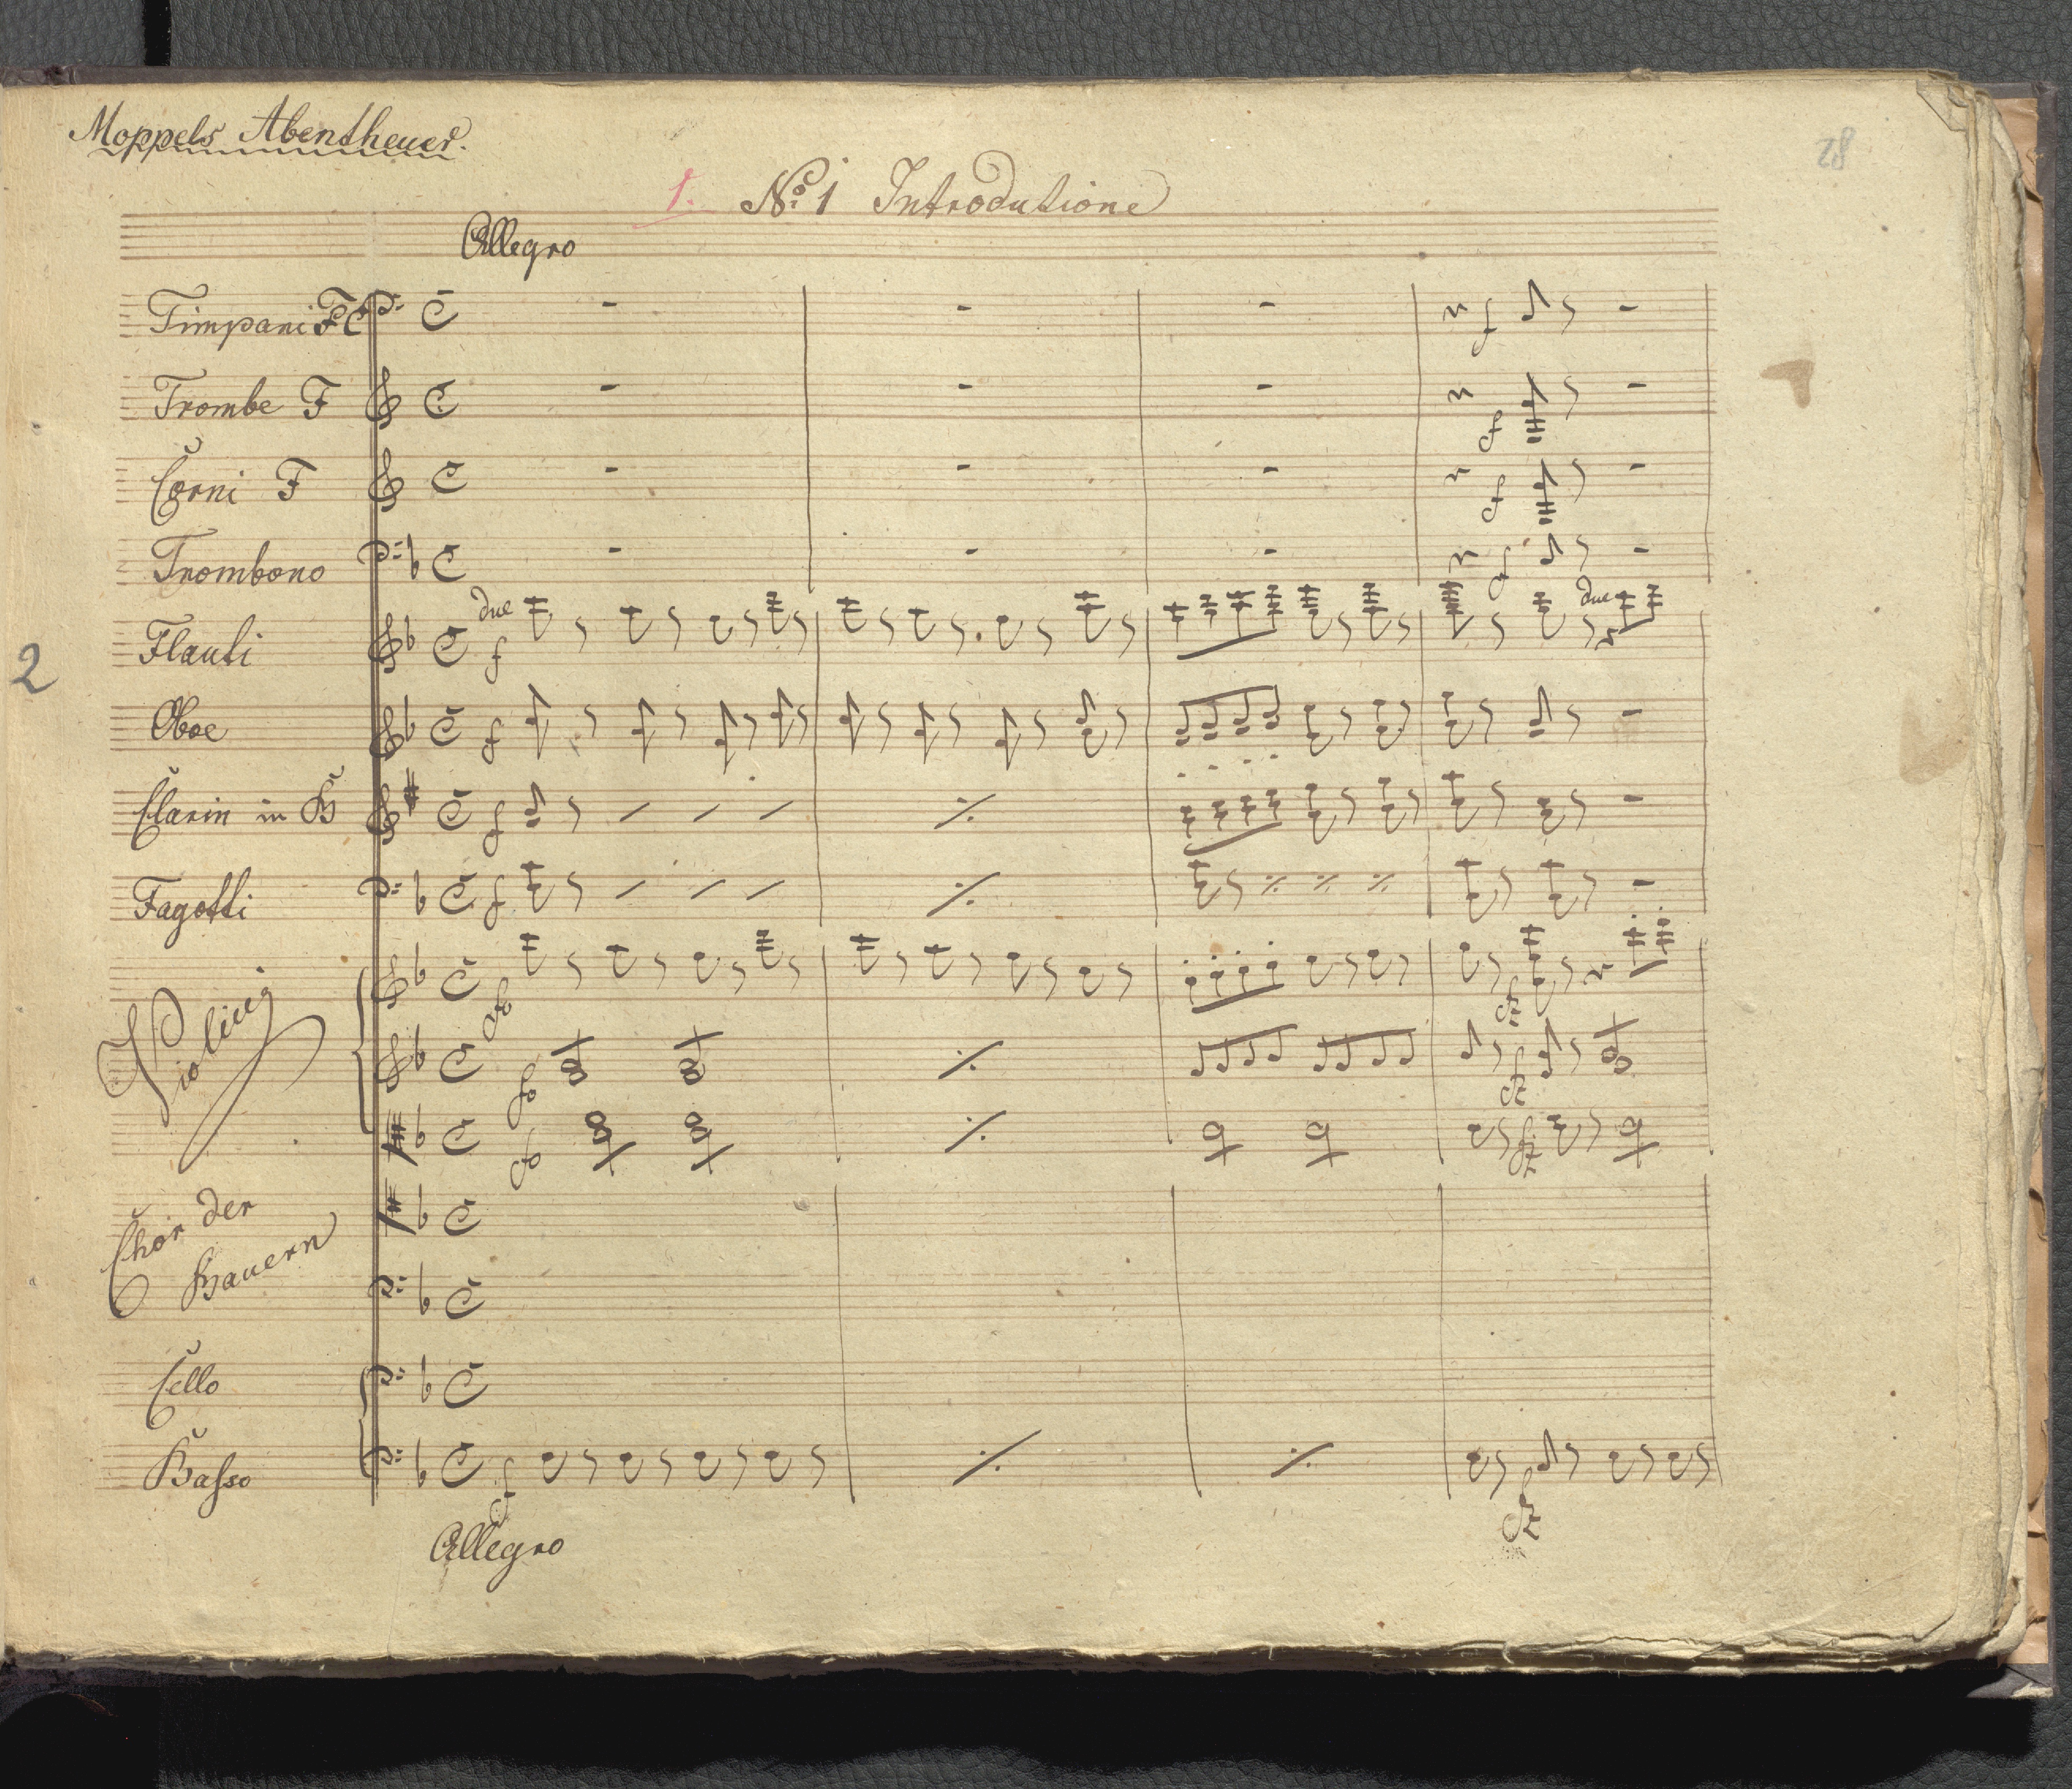 Moppels Abentheuer.
28
1. No. 1 Introdutione
Allegro
Timpani F C
Trombe F
Corni F
Trombono
due
f
Flauti
2
Oboe
f
Clarin in B
f
Fagotti
f
Violini
Chor der
Bauern
Cello
Basso
f
fz
Allegro